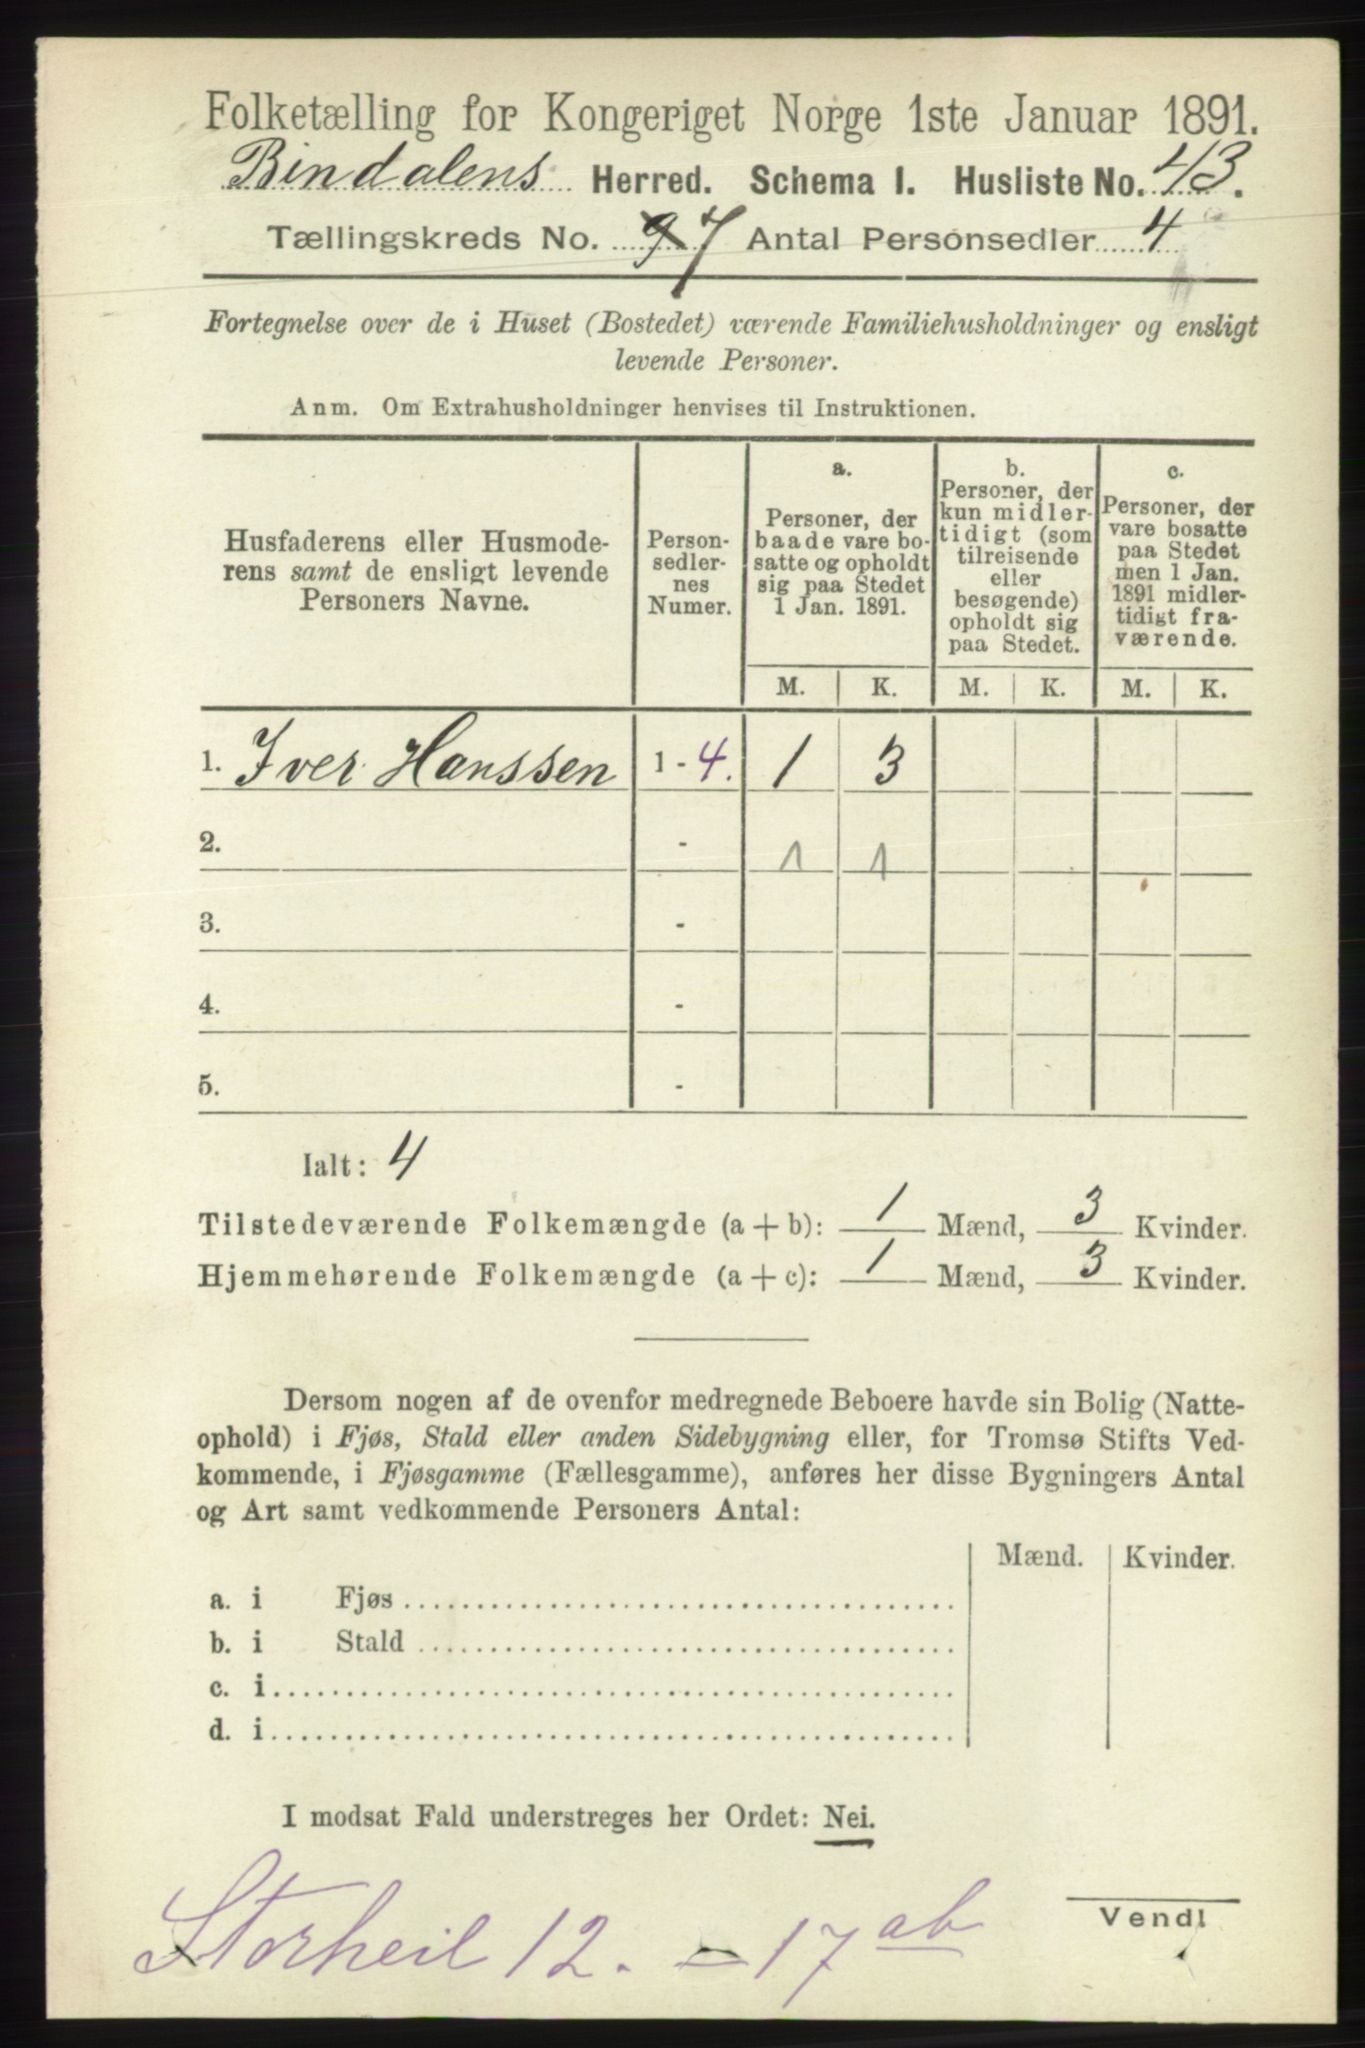 Folketælling for Kongeriget Norge 1ste Januar 1891.
Bindalens Herred. Schema I. Husliste No. 43.
Tællingskreds No. 9 7 Antal Personsedler 4
Fortegnelse over de i Huset (Bostedet) værende Familiehusholdninger og ensligt
levende Personer.
Anm. Om Extrahusholdninger henvises til Instruktionen.
Husfaderens eller Husmode-
rens samt de ensligt levende
Personers Navne.
Person-
sedler-
nes
Numer.
a.
Personer, der
baade vare bo-
satte og opholdt
sig paa Stedet
1 Jan. 1891.
b.
Personer, der
kun midler-
tidigt (som
tilreisende
eller
besøgende)
opholdt sig
paa Stedet.
c.
Personer, der
vare bosatte
paa Stedet
men 1 Jan.
1891 midler-
tidigt fra-
værende.
M. K. M. K. M. K.
1. Iver Hanssen 1 - 4. 1 3
2. - 1 1
3. -
4. -
5. -
Ialt: 4
Tilstedeværende Folkemængde (a + b): 1 Mænd, 3 Kvinder.
Hjemmehørende Folkemængde (a + c): 1 Mænd, 3 Kvinder.
Dersom nogen af de ovenfor medregnede Beboere havde sin Bolig (Natte-
ophold) i Fjøs, Stald eller anden Sidebygning eller, for Tromsø Stifts Ved-
kommende, i Fjøsgamme (Fællesgamme), anføres her disse Bygningers Antal
og Art samt vedkommende Personers Antal:
Mænd. Kvinder.
a. i Fjøs
b. i Stald
c. i
d. i
I modsat Fald understreges her Ordet: Nei.
Storheil 12. = 17 ab
Vend!